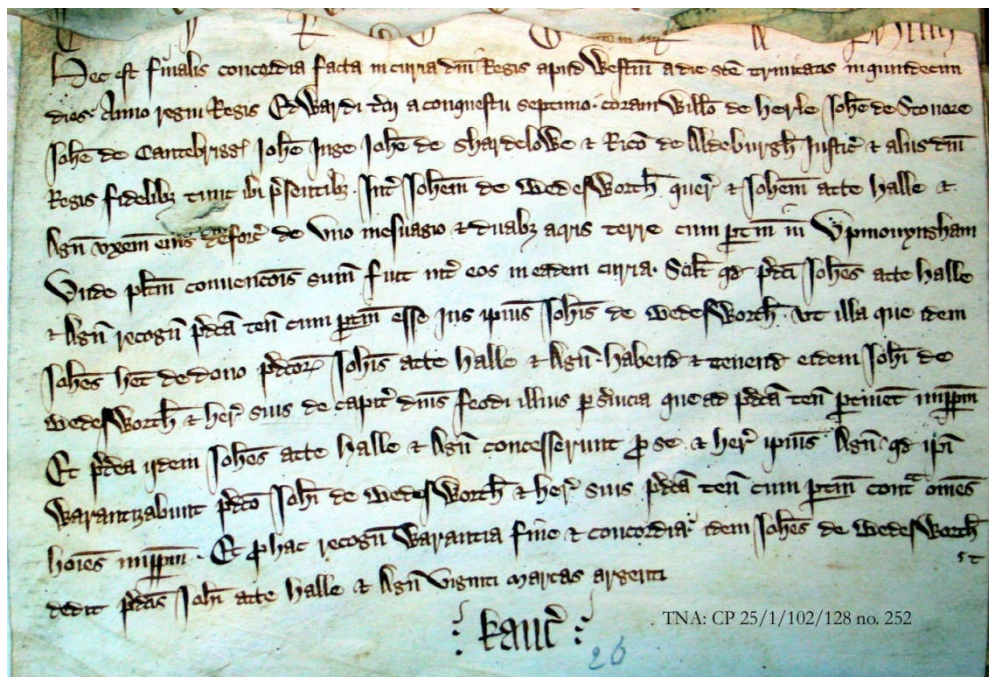 Hec est finalis concordia fc̄a in curia dn̄i Regis apud Westm̄ a die sc̄e trinitatis in quindecim
dies Anno regni Regis Edwardi tc̄ii a conquestu septimo. coram Willo de Herle Joh̄e de Stonore
Joh̄e de Cantebrigg̃ Joh̄e Inge Joh̄e de Shardelowe & Rico de Aldeburgh Justic̃ & aliis dn̄i
Regis fidelibȝ tunc ibi p̃sentibȝ. Int̃ Joh̄em de Wedesworth quer̃ & Joh̄em atte halle &
Agn̄ vxem eius deforc̃ de Vno mesuagio & duabȝ acris terre cum ptin̄ in Vpmonynsham
Vnde plc̄m convenc̄ois sum̄ fuit int̃ eos in eadem curia. Scil̃t qd p̃dc̄i Joh̄es atte halle
& Agn̄ recogn̄ p̃dc̄a ten̄ cum ptin̄ esse Jus ip̄ius Joh̄is de Wedesworth. vt illa que idem
Joh̄es het de dono p̃dc̄oꝝ Joh̄is atte halle & Agn̄. habend & tenend eidem Joh̄i de
Wedesworth & her̃ suis de capit̃ dn̄is feodi illius p s̃uicia que ad p̃dc̄a ten̄ ptinet imppm̄
Et p̃dea ijdem Joh̄es atte halle & Agn̄ concesserunt p̱ se & her̃ ip̄ius Agn̄. qd ip̄i
Warantizabunt p̃dc̄o Joh̄i de Wedesworth & her̃ suis p̃dc̄a ten̄ cum ptin̄ cont̃ om̄es
hoīes imppm̄. Et p̱ hac recogn̄ Warantia fine & concordia idem Joh̄es de Wedesworth
dedit p̃dc̄is Joh̄i atte halle & Agn̄ viginti marcas argenti
Kanc̃
26
TNA: CP 25/1/102/128 no. 252